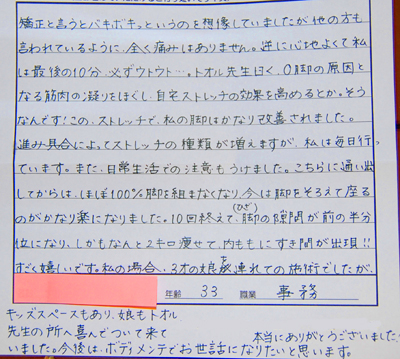 矯正と言うとバキボキっというのを想像していましたが他の方も
言われているように、全く痛みはありません。逆に心地よくて私
は最後の10分、必ずウトウト…。トオル先生曰く、O脚の原因と
なる筋肉の凝りをほぐし、自宅ストレッチの効果を高めるとか。そう
なんです！この、ストレッチで、私の脚はかなり改善されました。
進み具合によってストレッチの種類が増えますが、私は毎日行っ
ています。また、日常生活での注意もうけました。こちらに通い出
してからは、ほぼ100%脚を組まなくなり、今は脚をそろえて座る
のがかなり楽になりました。10回終えて、脚(ひざ)の隙間が前の半分
位になり、しかもなんと2キロ痩せて、内ももにすき間が出現!!
すごく嬉しいです。私の場合、3才の娘を連れての施術でしたが、
年齢 33 職業 事務
キッズスペースもあり、娘もトオル
先生の所へ喜んでついて来て
いました。今後は、ボディメンテでお世話になりたいと思います。
本当にありがとうございました